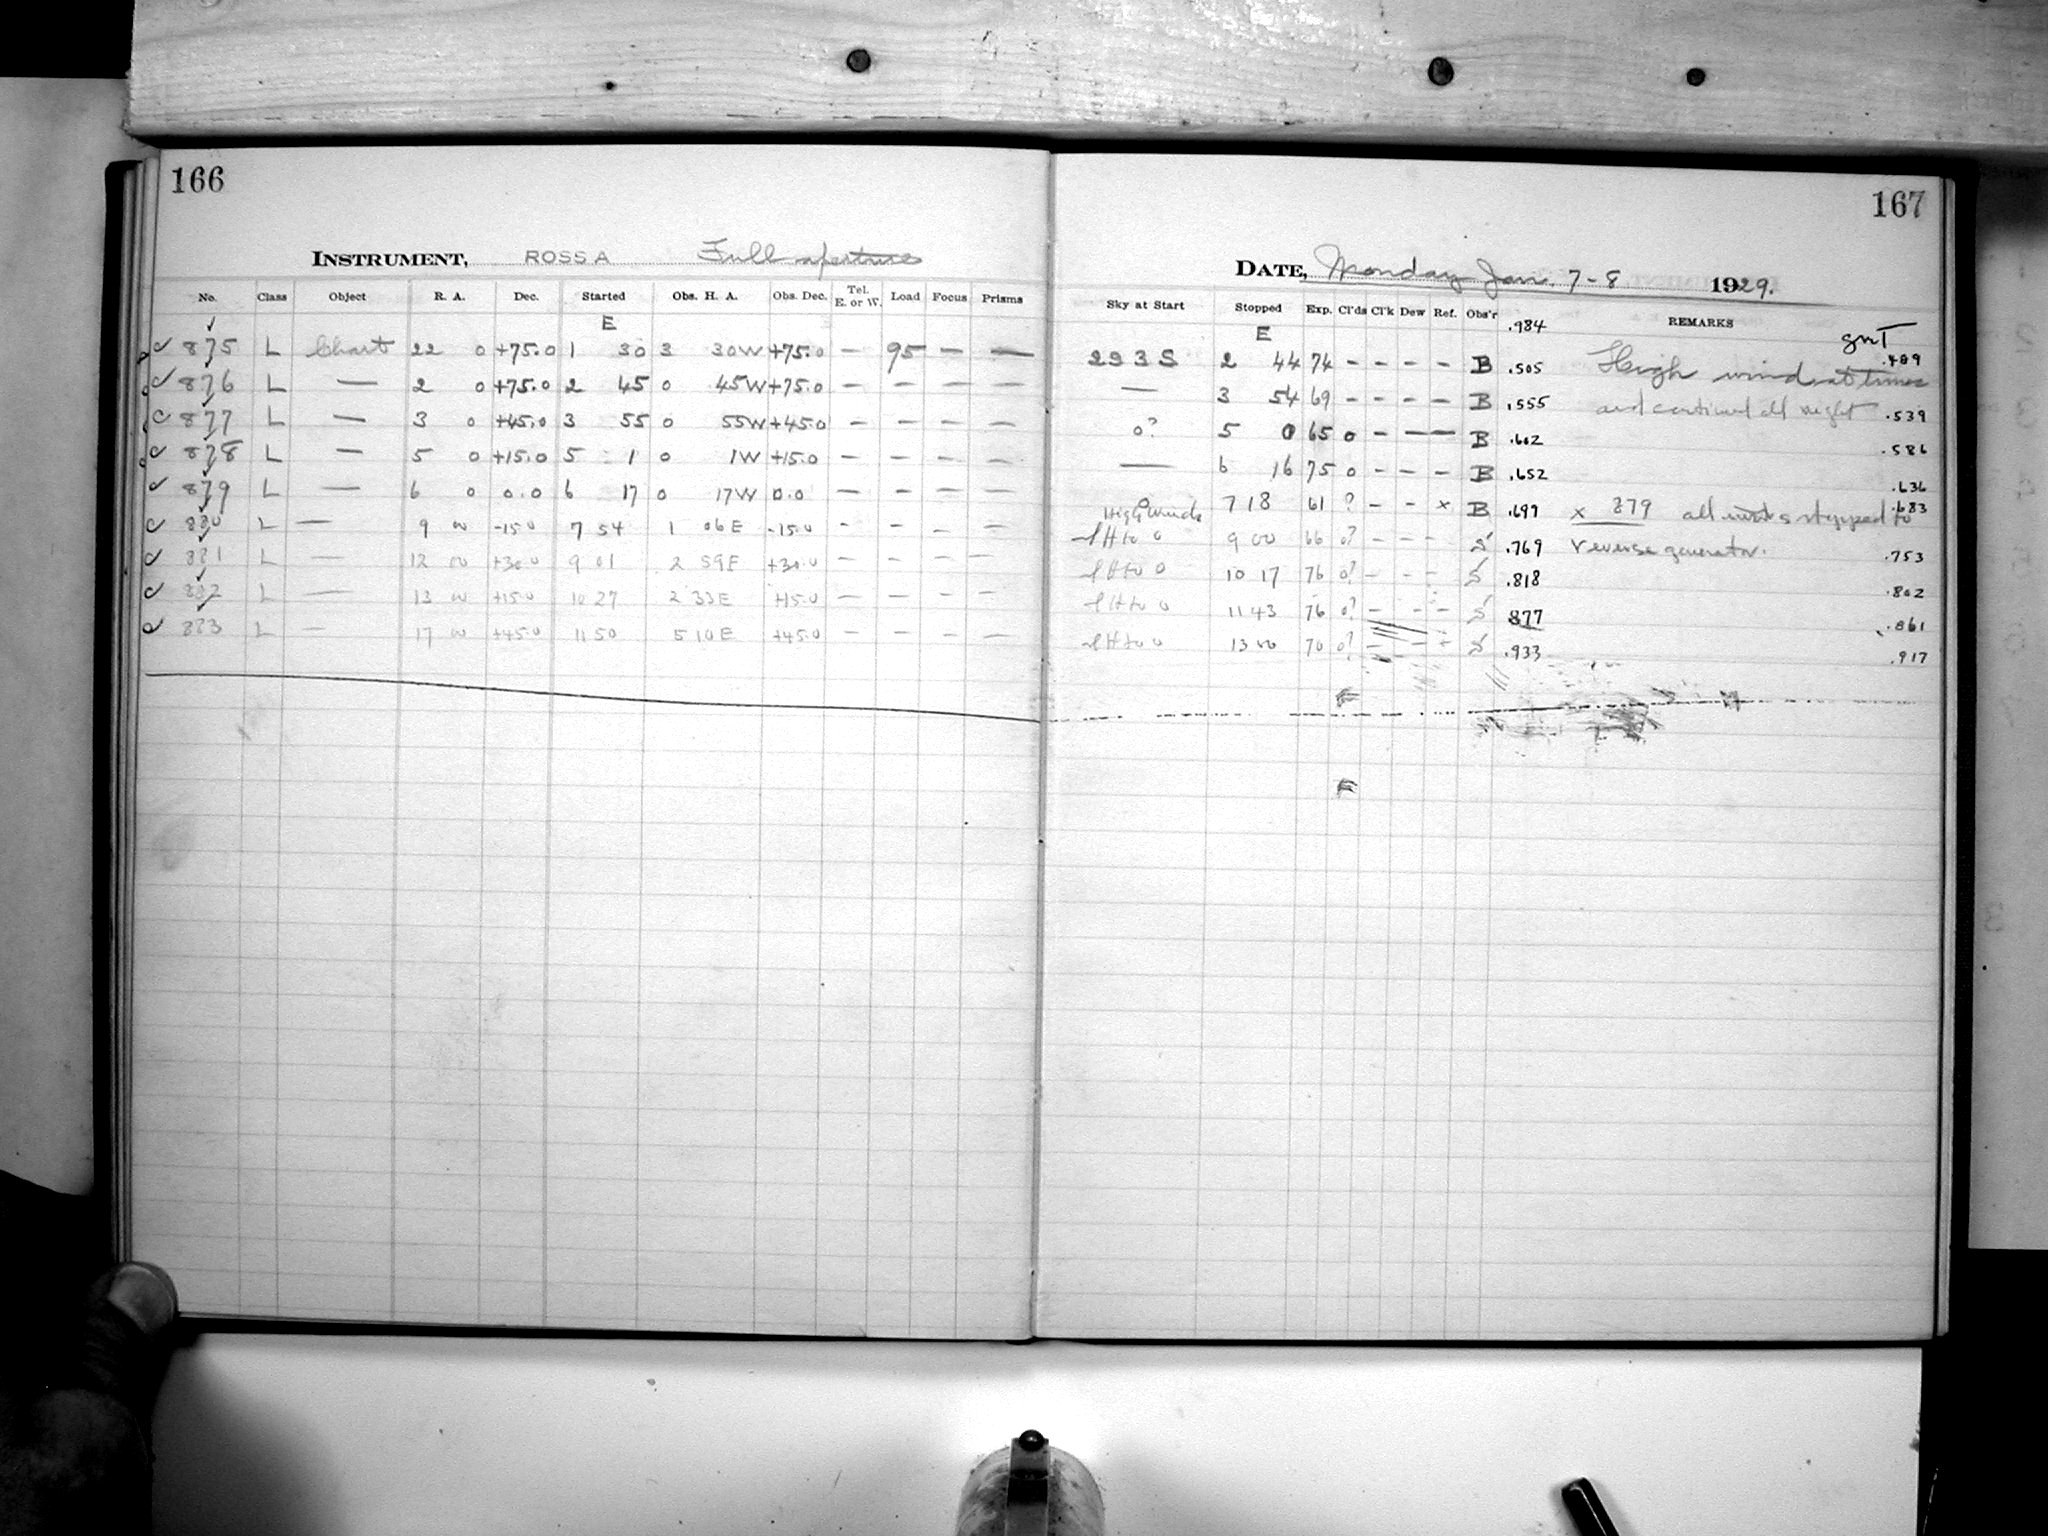 166
INSTRUMENT, ROSS A Full aperture
No. Class Object R. A. Dec. Started Obs. H. A. Obs. Dec. Tel. E. or W. Load Focus Prisms
E
875 L Chart 22 0 +75.0 1 30 3 30W +75.0 — 95 — —
876 L — 2 0 +75.0 2 45 0 45W +75.0 — — — —
877 L — 3 0 +45.0 3 55 0 55W +45.0 — — — —
878 L — 5 0 +15.0 5 1 0 1W +15.0 — — — —
879 L — 6 0 0.0 6 17 0 17W 0.0 — — — —
880 L — 9 00 -15.0 7 54 1 06E -15.0 — — — —
881 L — 12 00 +30.0 9 01 2 59E +30.0 — — — —
882 L — 13 00 +15.0 10 27 2 33E +15.0 — — — —
883 L — 17 00 +45.0 11 50 5 10E +45.0 — — — —
167
DATE, Monday Jan. 7-8 1929.
Sky at Start Stopped Exp. Cl'ds Cl'k Dew Ref. Obs'r .984 REMARKS
E GMT
293 S 2 44 74 - - - - B .505 High winds at times .489
— 3 54 69 - - - - B .555 and continued all night .539
0? 5 0 65 0 - - - B .602 .586
— 6 16 75 0 - - - B .652 .636
High Winds 7 18 61 ? - - x B .697 x 879 all stopped to .683
0 9 00 66 0? - - - S .769 reverse generator. .753
0 10 17 76 0? - - - S .818 .802
0 11 43 76 0? - - - S .877 .861
0 13 00 70 0? - - + S .933 .917